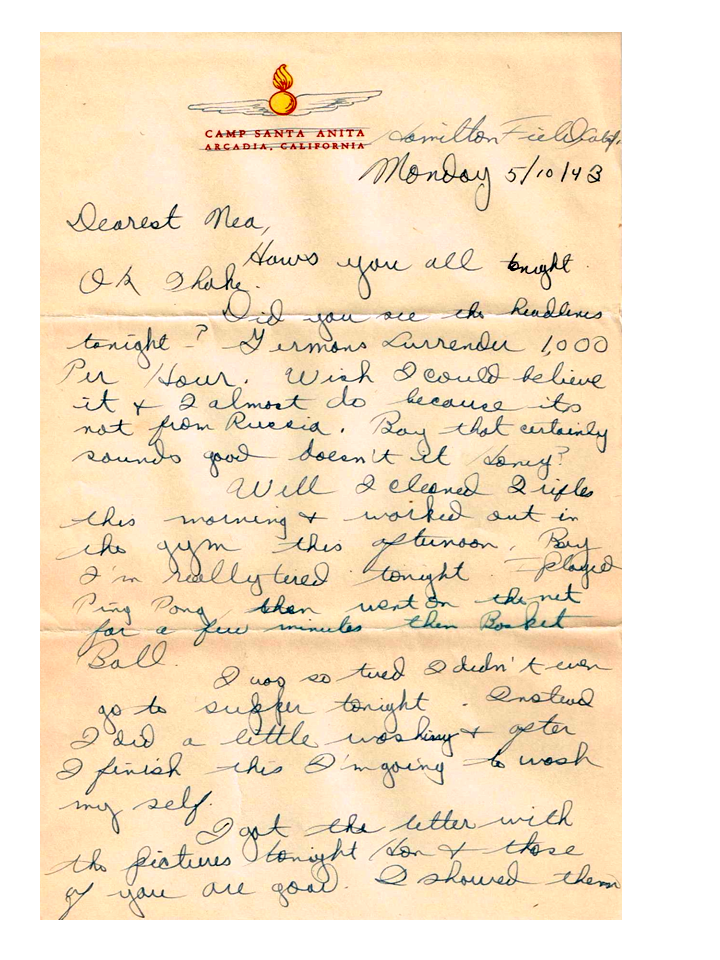 CAMP SANTA ANITA
ARCADIA, CALIFORNIA
Hamilton Field Calif.
Monday 5/10/43
Dearest Nea,
Hows you all tonight
OK I hope.
Did you see the headlines
tonight? Germans Surrender 1,000
Per Hour. Wish I could believe
it & I almost do because its
not from Russia. Boy that certainly
sounds good doesn't it Honey?
Well I cleaned 2 rifles
this morning & worked out in
the gym this afternoon. Boy
I'm really tired tonight. I played
Ping Pong then went on the net
for a few minutes then Basket
Ball.
I was so tired I didn't even
go to supper tonight. Instead
I did a little washing & after
I finish this I'm going to wash
my self.
I got the letter with
the pictures tonight Hon & those
of you are good. I showed them